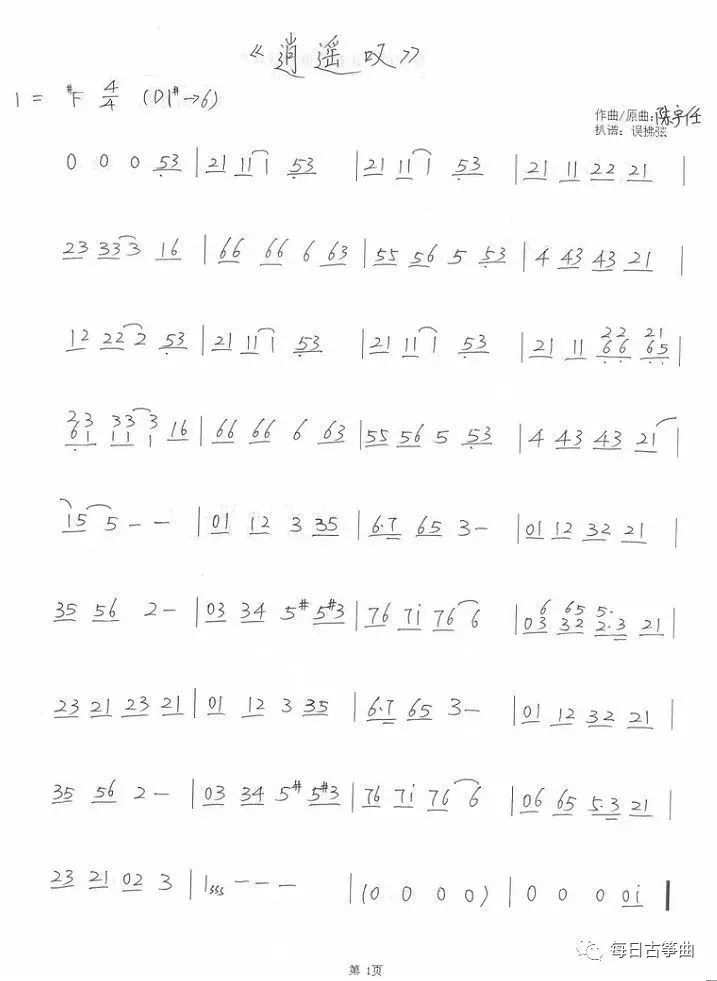 《逍遥叹》
1 = #F 4/4 (D1#→6)
作曲/原曲:陈宇任
扒谱:误拂弦
0 0 0 53 | 21 11 1 53 | 21 11 1 53 | 21 11 22 21 |
23 33 3 16 | 66 66 6 63 | 55 56 5 53 | 4 43 43 21 |
12 22 2 53 | 21 11 1 53 | 21 11 1 53 | 21 11 22 21 |
66 65
23 33 3
61 11 1 16 | 66 66 6 63 | 55 56 5 53 | 4 43 43 21 |
15 5 - - | 01 12 3 35 | 6·7 65 3 - | 01 12 32 21 |
35 56 2 - | 03 34 5# 5#3 | 76 7i 76 6 | 03 32 2·3 21 |
6 65 5·
23 21 23 21 | 01 12 3 35 | 6·7 65 3 - | 01 12 32 21 |
35 56 2 - | 03 34 5# 5#3 | 76 7i 76 6 | 06 65 5·3 21 |
23 21 02 3 | 1sss - - - | (0 0 0 0) | 0 0 0 0i |
每日古筝曲
第 1页